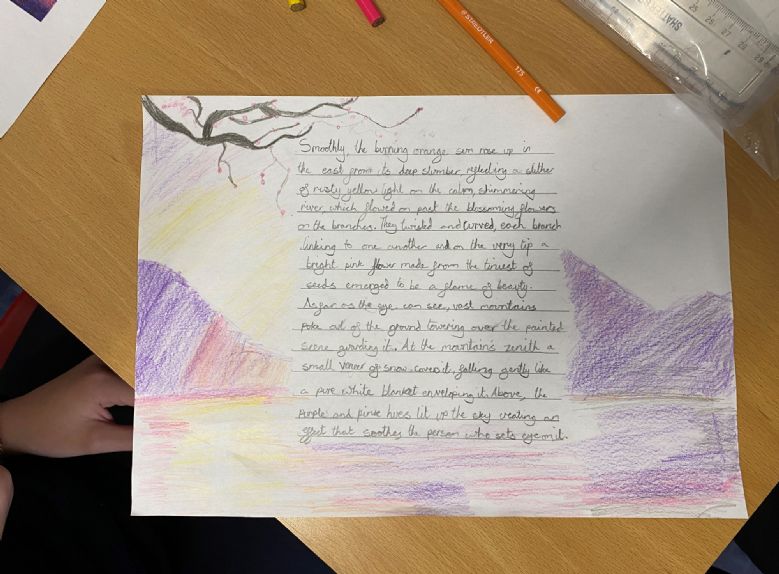 Smoothly, the burning orange sun rose up in
the east from its deep slumber, reflecting a slither
of rusty yellow light on the calm, shimmering
river, which flowed on past the blossoming flowers
on the branches. They twisted and curved, each branch
linking to one another and on the very tip a
bright pink flower made from the tiniest of
seeds emerged to be a flame of beauty.
As far as the eye can see, vast mountains
poke out of the ground towering over the painted
scene guarding it. At the mountain's zenith a
small veneer of snow covers it, falling gently like
a pure white blanket enveloping it. Above, the
purple and pink hues lit up the sky creating an
effect that soothes the person who sets eye on it.
STAEDTLER 175 CE
SHATTER
25 26 27 28 29